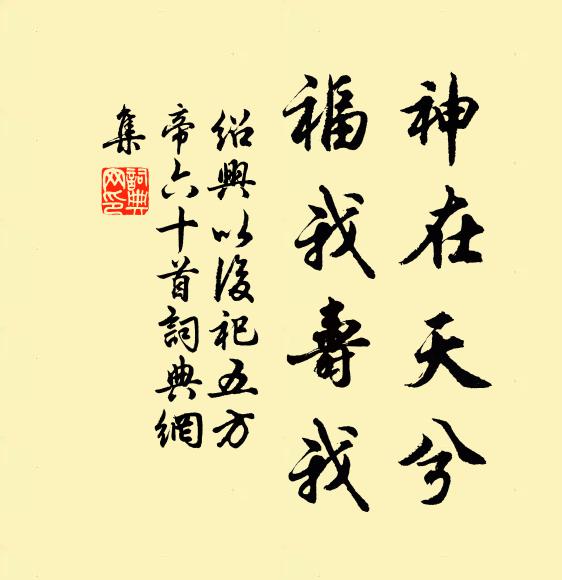 神在天兮
福我壽我
紹興以後祀五方
帝六十首詞典網
集
詞典
网印